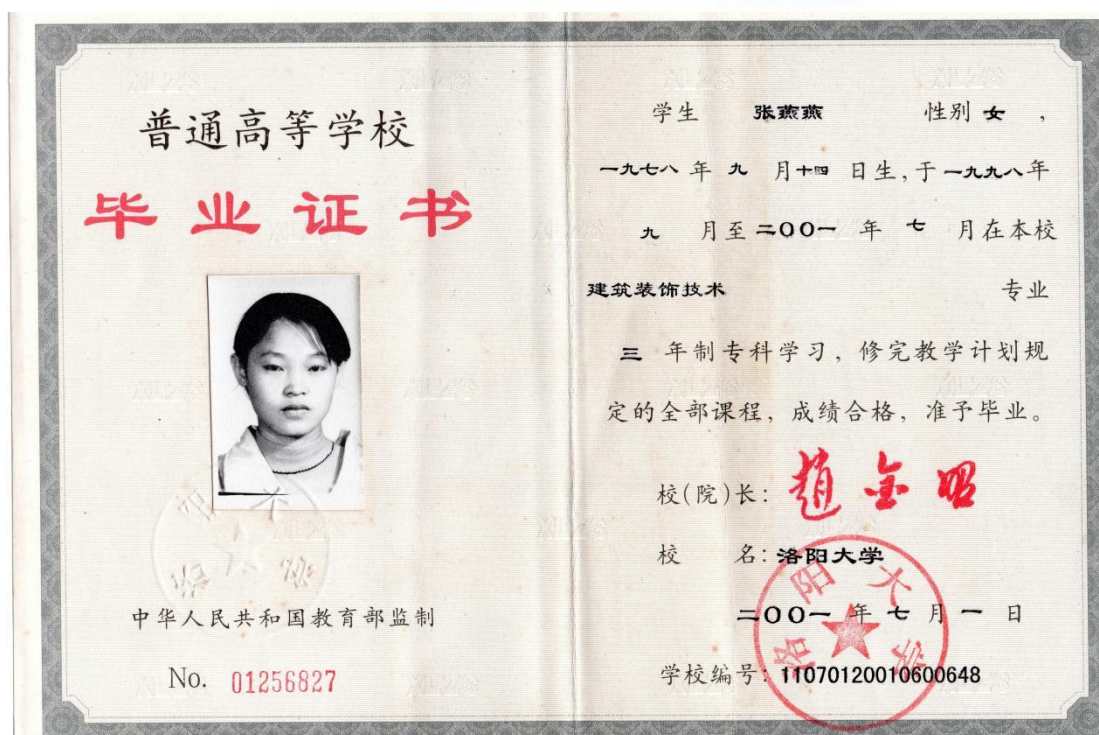 普通高等学校
毕业证书
中华人民共和国教育部监制
No. 01256827
学生 张燕燕 性别 女 ,
一九七八 年 九 月 十四 日生, 于 一九九八 年
九 月至 二00一 年 七 月在本校
建筑装饰技术 专业
三 年制专科学习, 修完教学计划规
定的全部课程, 成绩合格, 准予毕业。
校(院)长: 赵金昭
校 名: 洛阳大学
二00一 年 七 月 一 日
学校编号: 11070120010600648
洛阳大学
洛阳大学